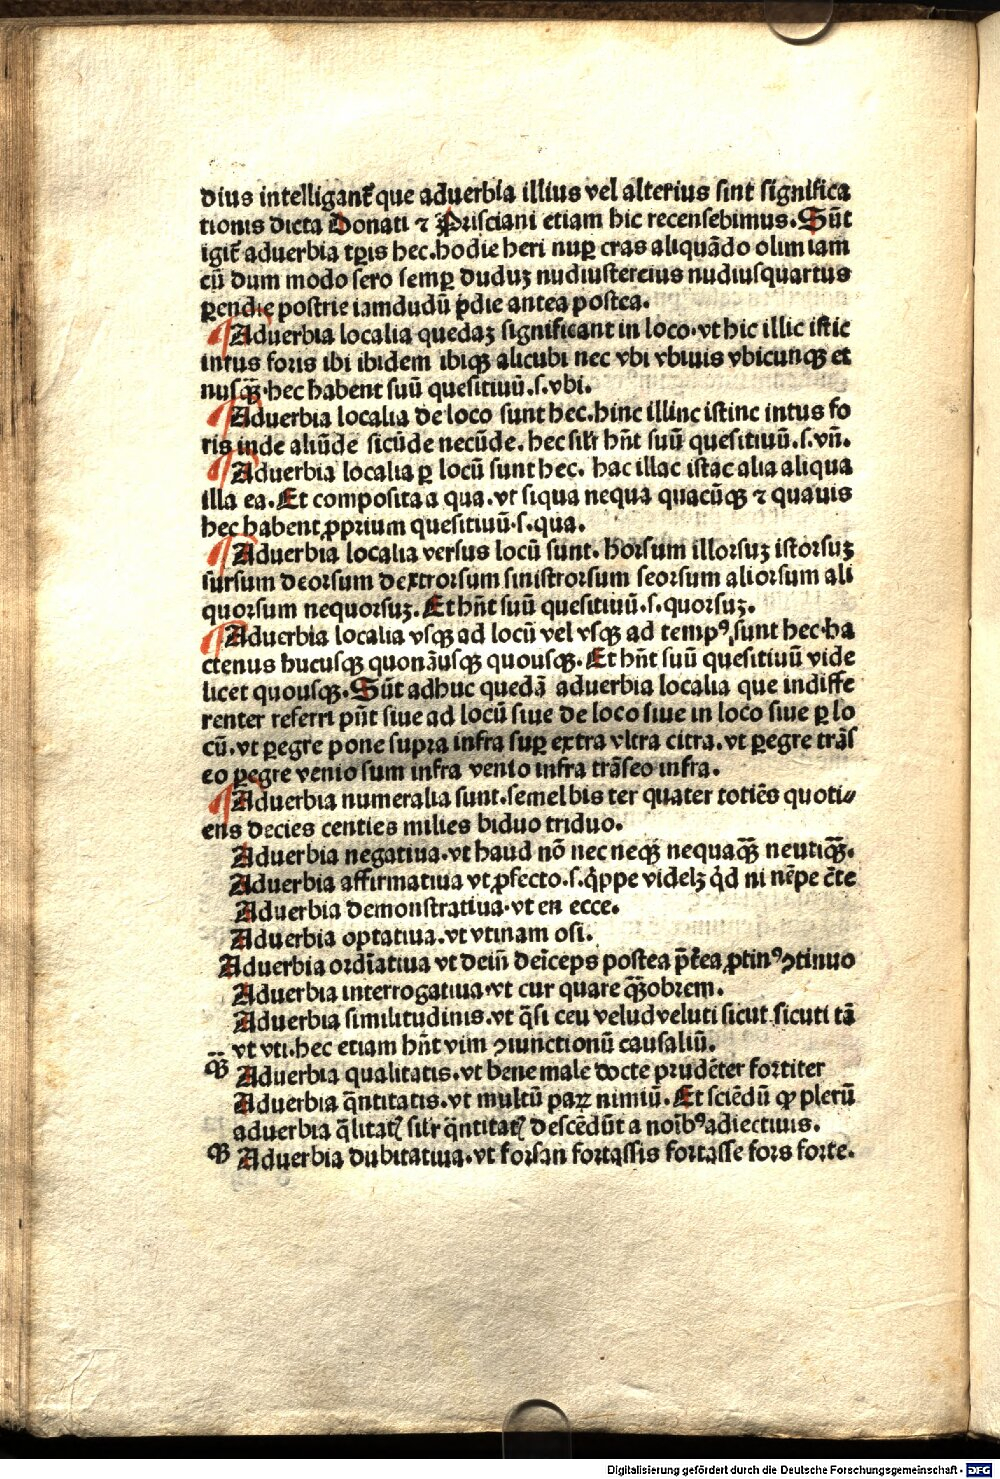 dius intelligant᷑ que aduerbia illius vel alterius sint significa
tionis dicta Donati ⁊ Prisciani etiam hic recensebimus. Sūt
igit᷑ aduerbia tꝑis hec. hodie heri nuꝑ cras aliquādo olim iam
cū dum modo sero semꝑ duduꝫ nudiustercius nudiusquartus
ꝑendie postrie iamdudū p̄die antea postea.
Aduerbia localia quedaꝫ significant in loco. vt hic illic istic
intus foris ibi ibidem ibiqꝫ alicubi nec vbi vbiuis vbicunqꝫ et
nusqꝫ̄. hec habent suū quesitiuū. s. vbi.
Aduerbia localia de loco sunt hec. hinc illinc istinc intus fo
ris inde aliūde sicūde necūde. hec silr hn̄t suū quesitiuū. s. vn̄.
Aduerbia localia ꝑ locū sunt hec. hac illac istac alia aliqua
illa ea. Et composita a qua. vt siqua nequa quacūqꝫ ⁊ quauis
hec habent ꝓprium quesitiuū. s. qua.
Aduerbia localia versus locū sunt. horsum illorsuꝫ istorsuꝫ
sursum deorsum dextrorsum sinistrorsum seorsum aliorsum ali
quorsum nequorsuꝫ. Et hn̄t suū quesitiuū. s. quorsuꝫ.
Aduerbia localia vsqꝫ ad locū vel vsqꝫ ad tempꝰ, sunt hec. ha
ctenus hucusqꝫ quonāusqꝫ quousqꝫ. Et hn̄t suū quesitiuū vide
licet quousqꝫ. Sūt adhuc quedā aduerbia localia que indiffe
renter referri pn̄t siue ad locū siue de loco siue in loco siue ꝑ lo
cū. vt ꝑegre pone supra infra suꝑ extra vltra citra. vt ꝑegre trās
eo ꝑegre venio sum infra venio infra trāseo infra.
Aduerbia numeralia sunt. semel bis ter quater totiēs quoti⸗
ens decies centies milies biduo triduo.
Aduerbia negatiua. vt haud nō nec neqꝫ nequaqꝫ̄ neutiqꝫ̄.
Aduerbia affirmatiua vt ꝓfecto. s. q̇ppe videlꝫ q̇d ni nēpe c̄te
Aduerbia demonstratiua. vt en ecce.
Aduerbia optatiua. vt vtinam osi.
Aduerbia ordīatiua vt dein̄ deīceps postea p̄t̄ea ꝓtinꝰ ꝯtinuo
Aduerbia interrogatiua. vt cur quare qꝫ̄obrem.
Aduerbia similitudinis. vt q̄si ceu velud veluti sicut sicuti tā
vt vti. hec etiam hn̄t vim ꝯiunctionū causaliū.
Aduerbia qualitatis. vt bene male docte prudēter fortiter
Aduerbia q̄ntitatis. vt multū paꝝ nimiū. Et sciēdū ꝙ plerū
qꝫ̈ aduerbia q̄litatꝭ silr q̄ntitatꝭ descēdūt a noībꝰ adiectiuis.
qꝫ Aduerbia dubitatiua. vt forsan fortassis fortasse fors forte.
Digitalisierung gefördert durch die Deutsche Forschungsgemeinschaft - DFG